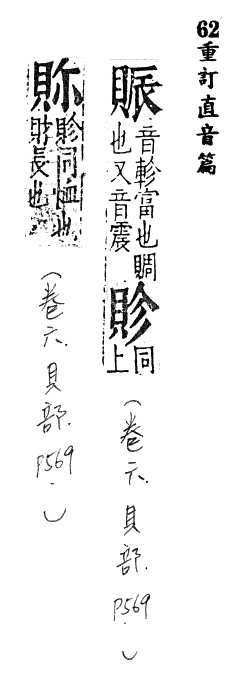 62重訂直音篇
賑
音軫富也賙
也又音震
同上
(卷六.貝部.P569.)
同䘏也
財長也
(卷六.貝部.P569.)